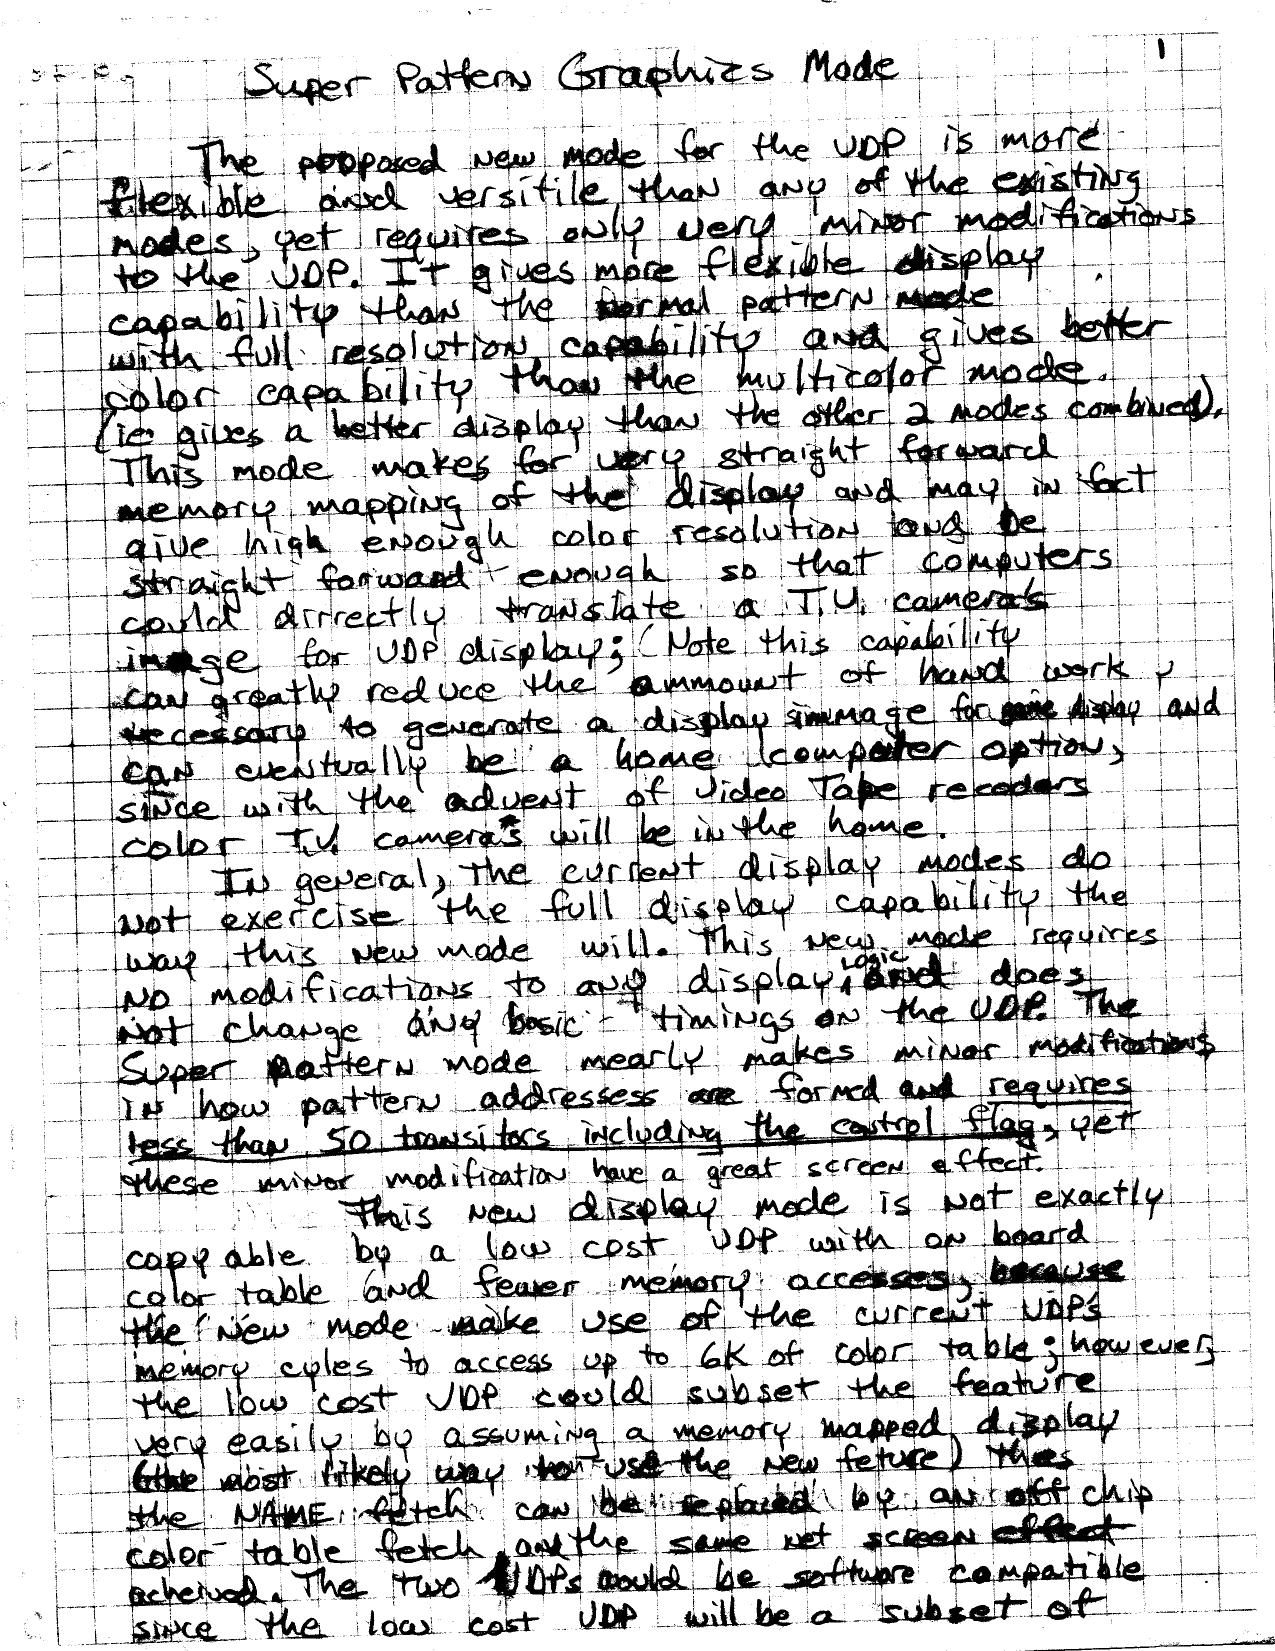 1
Super Pattern Graphics Mode
The proposed new mode for the VDP is more
flexible and versitile than any of the existing
modes, yet requires only very minor modifications
to the VDP. It gives more flexible display
capability than the normal pattern mode
with full resolution capability and gives better
color capability than the multicolor mode.
(ie gives a better display than the other 2 modes combined).
This mode makes for very straight forward
memory mapping of the display and may in fact
give high enough color resolution and be
straight forward enough so that computers
could dirrectly translate a T.V. camera's
image for VDP display; (Note this capability
can greatly reduce the ammount of hand work,
necessary to generate a display simmage for game display and
can eventually be a home computer option,
since with the advent of Video Tape recoders
color T.V. camera's will be in the home.
In general, the current display modes do
not exercise the full display capability the
way this new mode will. This new mode requires
no modifications to any display, Logic and does
not change any basic timings on the VDP. The
Super pattern mode mearly makes minor modifications
in how pattern addressess are formed and requires
less than 50 transitors including the control flag, yet
these minor modification have a great screen effect.
This new display mode is not exactly
copyable by a low cost VDP with on board
color table and fewer memory accesses, because
the new mode make use of the current VDP's
memory cyles to access up to 6K of color table; however,
the low cost VDP could subset the feature
very easily by assuming a memory mapped display
(the most likely way to use the new feture) thes
the NAME fetch can be replaced by an off chip
color table fetch and the same net screen effect
acheived. The two VDPs would be software compatible
since the low cost VDP will be a subset of